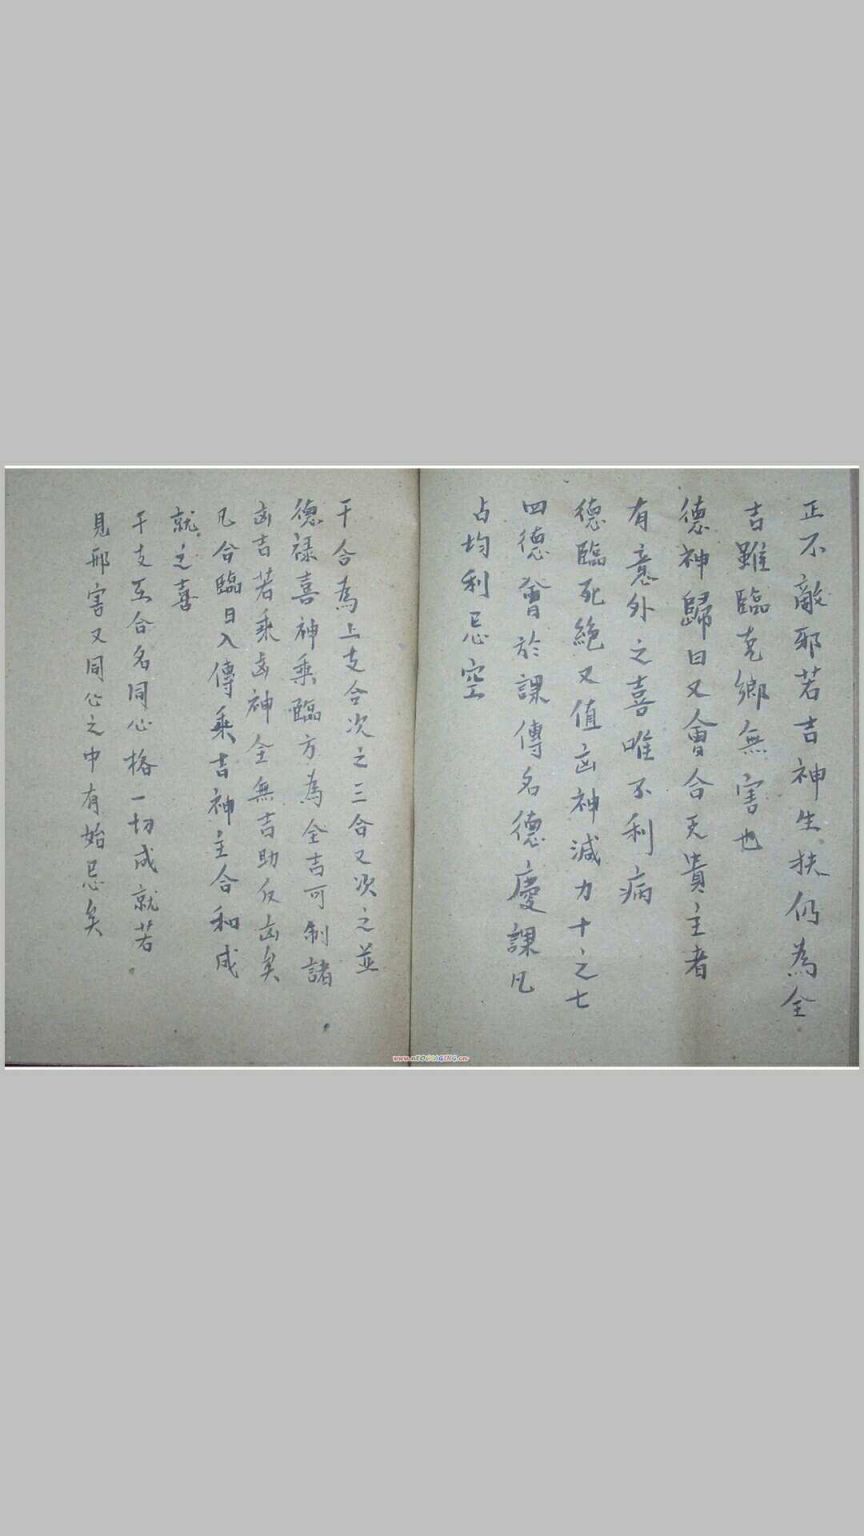 正不敵邪若吉神生扶仍為全
吉雖臨克鄉無害也
德神歸日又會合天貴主者
有意外之喜唯不利病
德臨死絕又值凶神減力十之七
四德會於課傳名德慶課凡
占均利忌空
干合為上支合次之三合又次之並
德祿喜神乘臨方為全吉可制諸
凶吉若乘凶神全無吉助反凶矣
凡合臨日入傳乘吉神主合和成
就之喜
干支互合名同心格一切成就若
見刑害又同心之中有始忌矣